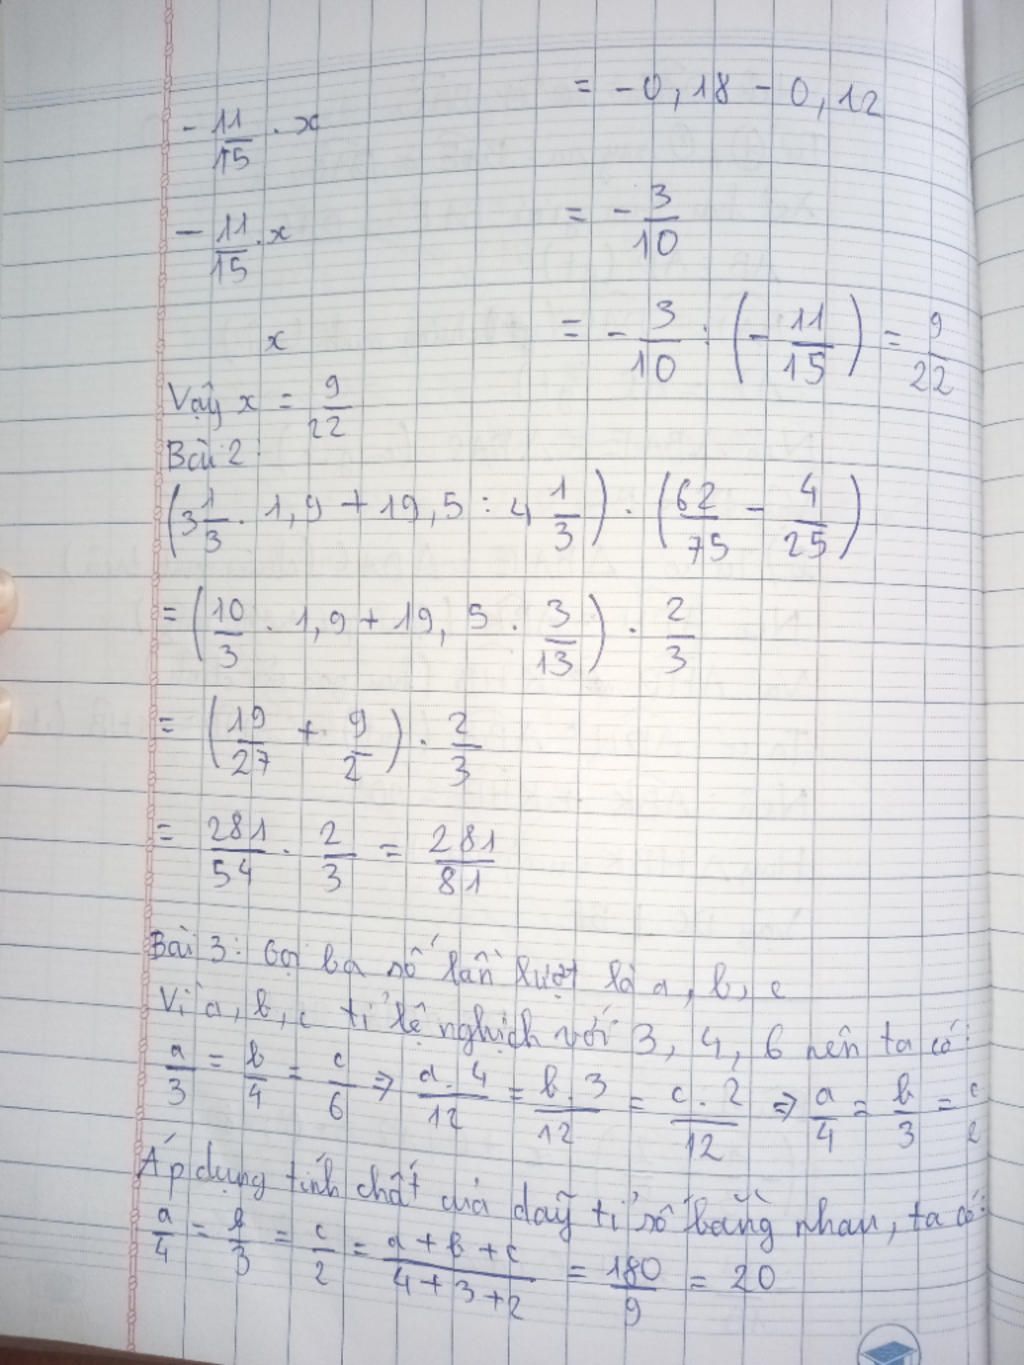 -11/15 . x = -0,18 - 0,12
-11/15 . x = -3/10
x = -3/10 : (-11/15) = 9/22
Vậy x = 9/22
Bài 2
(3 1/3 . 1,9 + 19,5 : 4 1/3) . (62/75 - 4/25)
= (10/3 . 1,9 + 19,5 . 3/13) . 2/3
= (19/27 + 9/2) . 2/3
= 281/54 . 2/3 = 281/81
Bài 3: Gọi ba số lần lượt là a, b, c
Vì a, b, c tỉ lệ nghịch với 3, 4, 6 nên ta có:
a/3 = b/4 = c/6 => a.4/12 = b.3/12 = c.2/12 => a/4 = b/3 = c/2
Áp dụng tính chất của dãy tỉ số bằng nhau, ta có:
a/4 = b/3 = c/2 = a+b+c/4+3+2 = 180/9 = 20